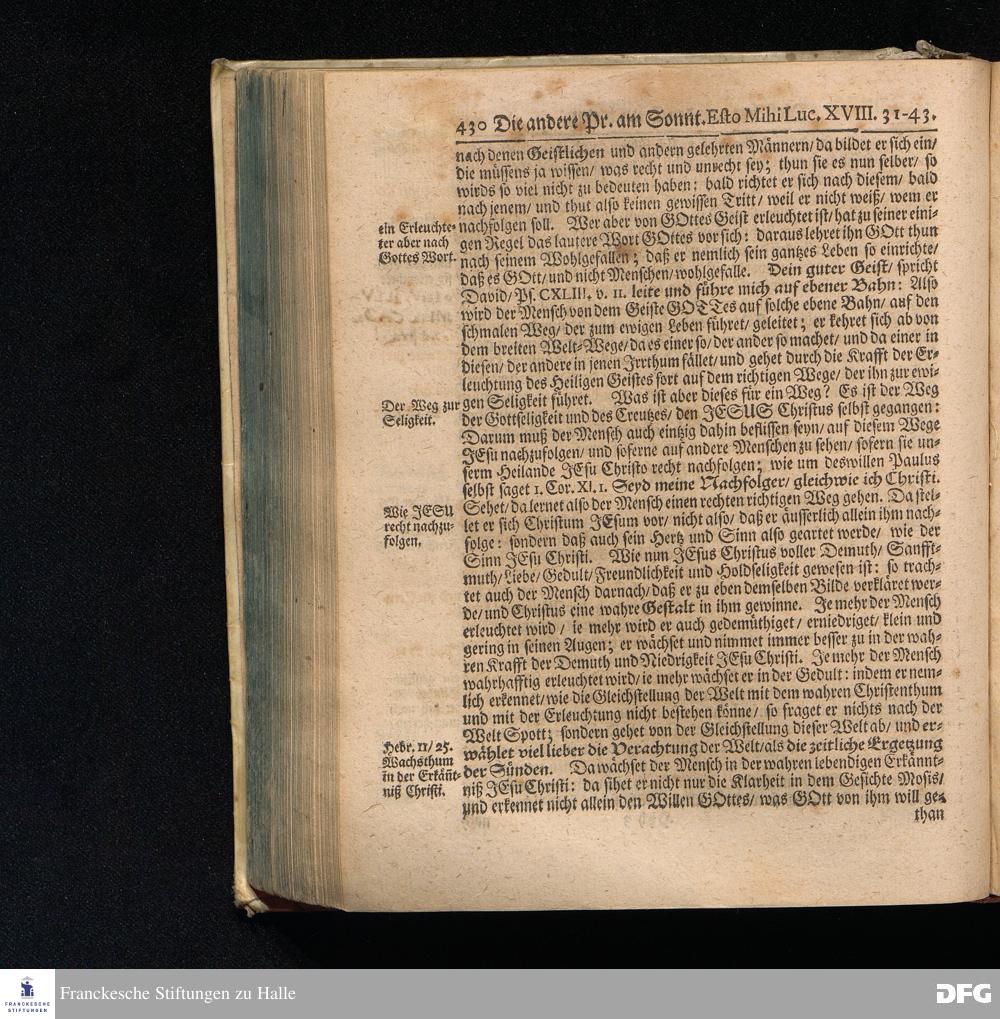 430 Die andere Pr. am Sonnt. Esto Mihi Luc. XVIII. 31-43.
nach denen Geistlichen und andern gelehrten Männern/ da bildet er sich ein/
die müssens ja wissen/ was recht und unrecht sey; thun sie es nun selber/ so
wirds so viel nicht zu bedeuten haben: bald richtet er sich nach diesem/ bald
nach jenem/ und thut also keinen gewissen Tritt/ weil er nicht weiß/ wem er
nachfolgen soll. Wer aber von GOttes Geist erleuchtet ist/ hat zu seiner eini-
gen Regel das lautere Wort GOttes vor sich: daraus lehret ihn GOtt thun
nach seinem Wohlgefallen; daß er nemlich sein gantzes Leben so einrichte/
daß es GOtt/ und nicht Menschen/ wohlgefalle. Dein guter Geist/ spricht
David/ Ps. CXLIII. v. 11. leite und führe mich auf ebener Bahn: Also
wird der Mensch von dem Geiste GOTTes auf solche ebene Bahn/ auf den
schmalen Weg/ der zum ewigen Leben führet/ geleitet; er kehret sich ab von
dem breiten Welt-Wege/ da es einer so/ der ander so machet/ und da einer in
diesen/ der andere in jenen Irrthum fället/ und gehet durch die Krafft der Er-
leuchtung des Heiligen Geistes fort auf dem richtigen Wege/ der ihn zur ewi-
gen Seligkeit führet. Was ist aber dieses für ein Weg? Es ist der Weg
der Gottseligkeit und des Creutzes/ den JESUS Christus selbst gegangen:
Darum muß der Mensch auch eintzig dahin beflissen seyn/ auf diesem Wege
JEsu nachzufolgen/ und soferne auf andere Menschen zu sehen/ sofern sie un-
serm Heilande JEsu Christo recht nachfolgen; wie um deswillen Paulus
selbst saget 1. Cor. XI. 1. Seyd meine Nachfolger/ gleichwie ich Christi.
Sehet/ da lernet also der Mensch einen rechten richtigen Weg gehen. Da stel-
let er sich Christum JEsum vor/ nicht also/ daß er äusserlich allein ihm nach-
folge: sondern daß auch sein Hertz und Sinn also geartet werde/ wie der
Sinn JEsu Christi. Wie nun JEsus Christus voller Demuth/ Sanfft-
muth/ Liebe/ Gedult/ Freundlichkeit und Holdseligkeit gewesen ist: so trach-
tet auch der Mensch darnach/ daß er zu eben demselben Bilde verkläret wer-
de/ und Christus eine wahre Gestalt in ihm gewinne. Je mehr der Mensch
erleuchtet wird/ ie mehr wird er auch gedemüthiget/ erniedriget/ klein und
gering in seinen Augen; er wächset und nimmet immer besser zu in der wah-
ren Krafft der Demuth und Niedrigkeit JEsu Christi. Je mehr der Mensch
wahrhafftig erleuchtet wird/ ie mehr wächset er in der Gedult: indem er nem-
lich erkennet/ wie die Gleichstellung der Welt mit dem wahren Christenthum
und mit der Erleuchtung nicht bestehen könne/ so fraget er nichts nach der
Welt Spott; sondern gehet von der Gleichstellung dieser Welt ab/ und er-
wählet viel lieber die Verachtung der Welt/ als die zeitliche Ergetzung
der Sünden. Da wächset der Mensch in der wahren lebendigen Erkännt-
niß JEsu Christi: da sihet er nicht nur die Klarheit in dem Gesichte Mosis/
und erkennet nicht allein den Willen GOttes/ was GOtt von ihm will ge-
than
ein Erleuchte-
ter aber nach
Gottes Wort.
Der Weg zur
Seligkeit.
Wie JESU
recht nachzu-
folgen.
Hebr. 11/ 25.
Wachsthum
in der Erkänt-
niß Christi.
FRANCKESCHE
STIFTUNGEN
Franckesche Stiftungen zu Halle
DFG